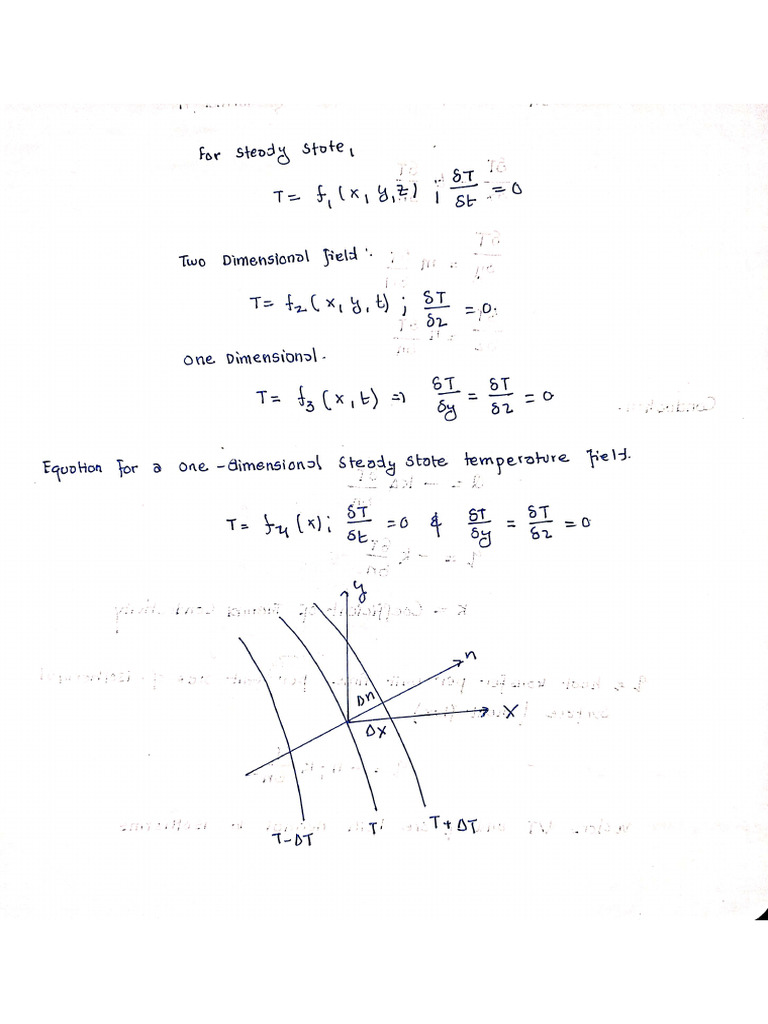 For steady state,
T = f₁ (x, y, z) ; δT/δt = 0
Two Dimensional field :
T = f₂ (x, y, t) ; δT/δz = 0.
One Dimensional.
T = f₃ (x, t) => δT/δy = δT/δz = 0
Equation for a one-dimensional steady state temperature field.
T = f₄ (x) ; δT/δt = 0 & δT/δy = δT/δz = 0
y
n
Δn
x
Δx
T-ΔT
T
T+ΔT